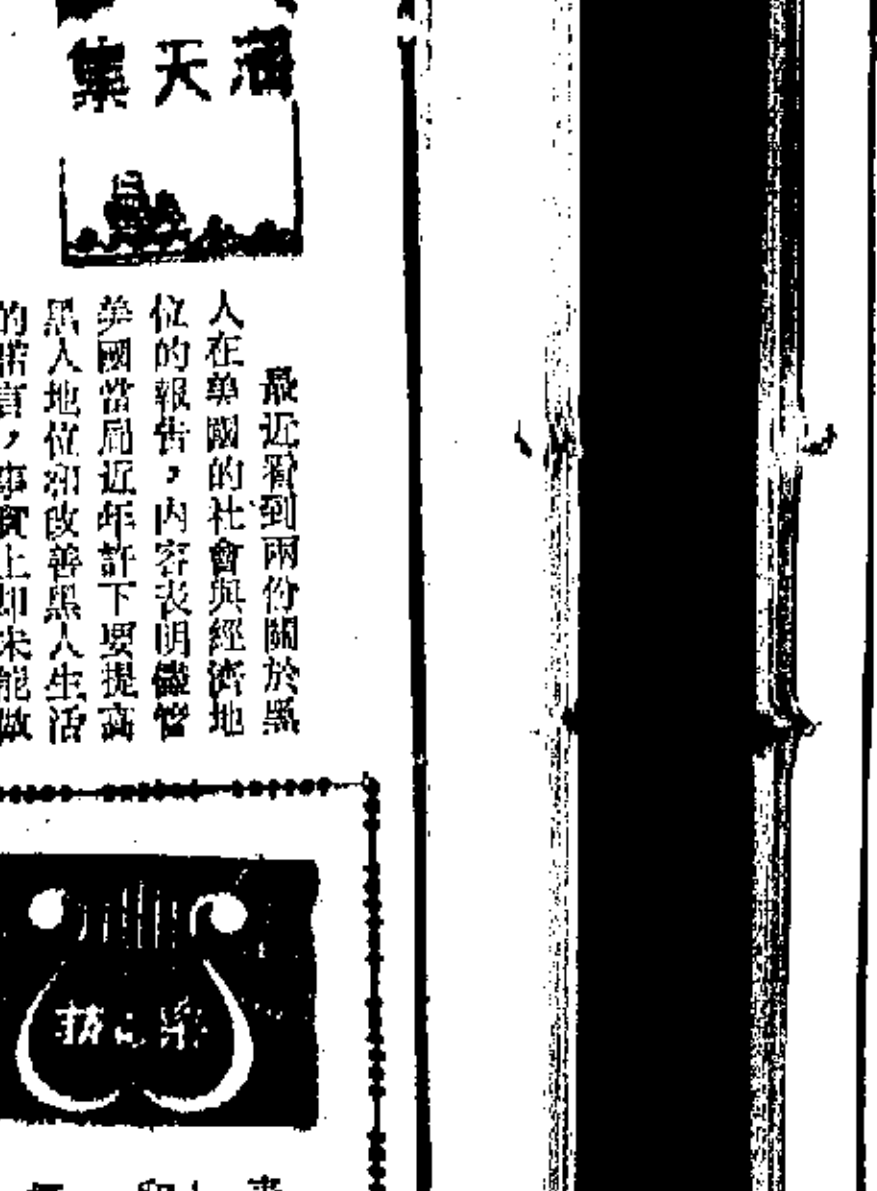 滿天集
最近看到兩份關於黑
人在美國的社會與經濟地
位的報告，內容表明儘管
美國當局近年許下要提高
黑人地位和改善黑人生活
的諾言，事實上却未能做
樂